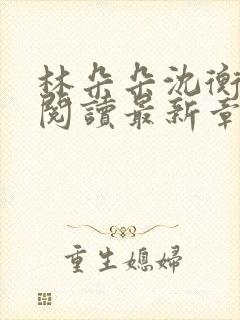 林朵朵沈衡
閱讀最新章
重生媳婦